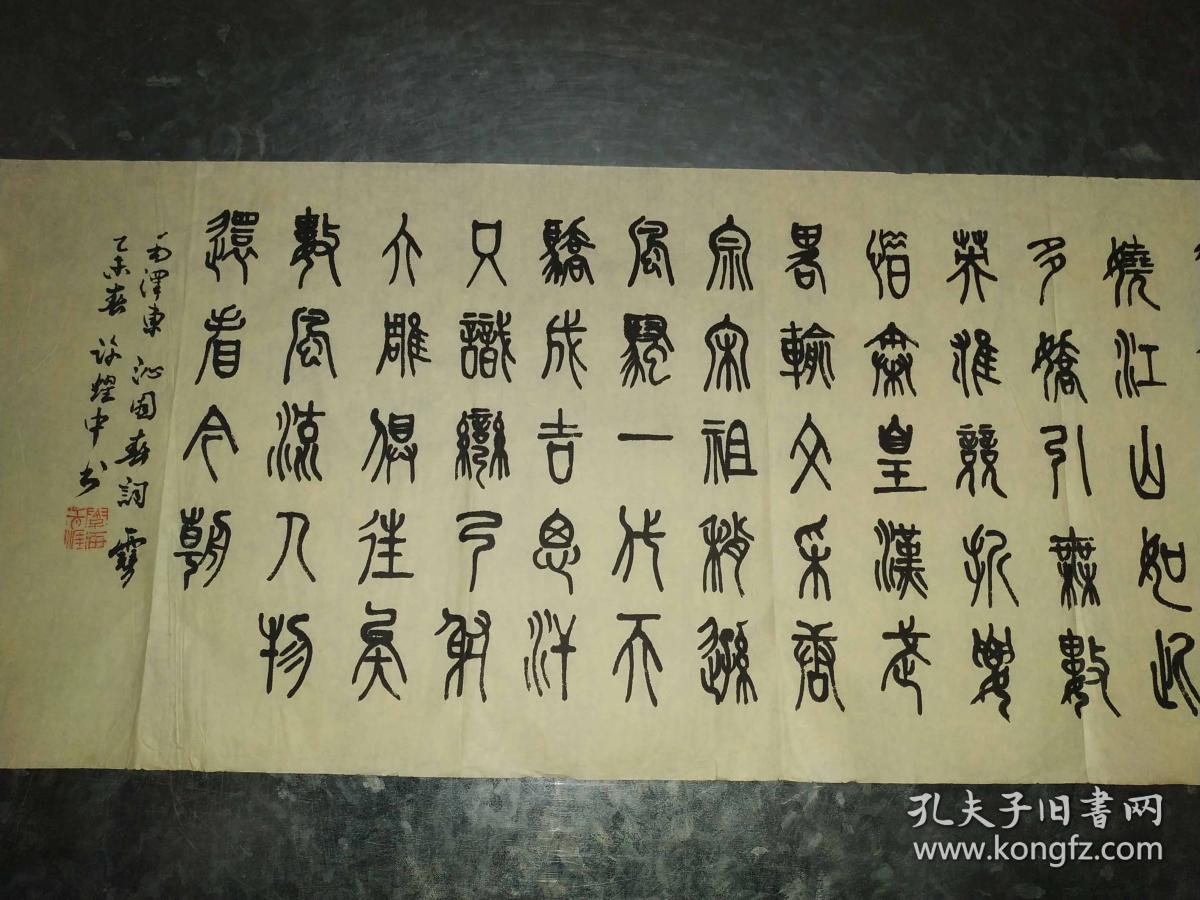 嬈江山如此
多嬌引無數
英雄競折腰
惜秦皇漢武
畧輸文采唐
宗宋祖稍遜
風騷一代天
驕成吉思汗
只識彎弓射
大雕俱往矣
數風流人物
還看今朝
毛澤東沁園春詞 雪
乙未春 許煌中書
學海無涯
孔夫子旧書网
www.kongfz.com